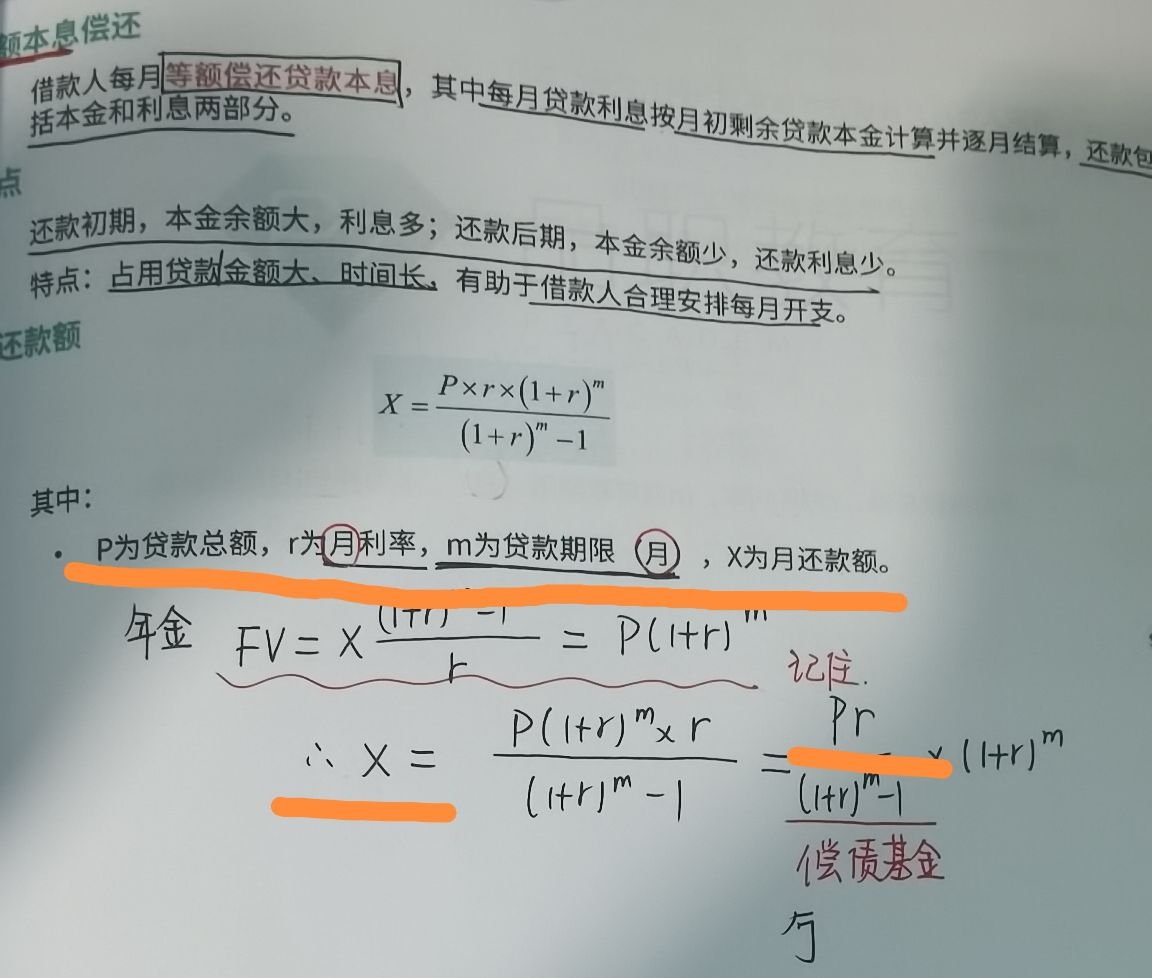 额本息偿还
借款人每月等额偿还贷款本息,其中每月贷款利息按月初剩余贷款本金计算并逐月结算,还款包
括本金和利息两部分。
点
还款初期,本金余额大,利息多;还款后期,本金余额少,还款利息少。
特点:占用贷款金额大、时间长,有助于借款人合理安排每月开支。
还款额
X = P×r×(1+r)^m / ((1+r)^m −1)
其中:
• P为贷款总额,r为月利率,m为贷款期限(月),X为月还款额。
年金 FV = X ((1+r)^m −1)/r = P(1+r)^m
记住.
∴ X = P(1+r)^m × r / ((1+r)^m −1) = Pr / ((1+r)^m −1) × (1+r)^m
偿债基金